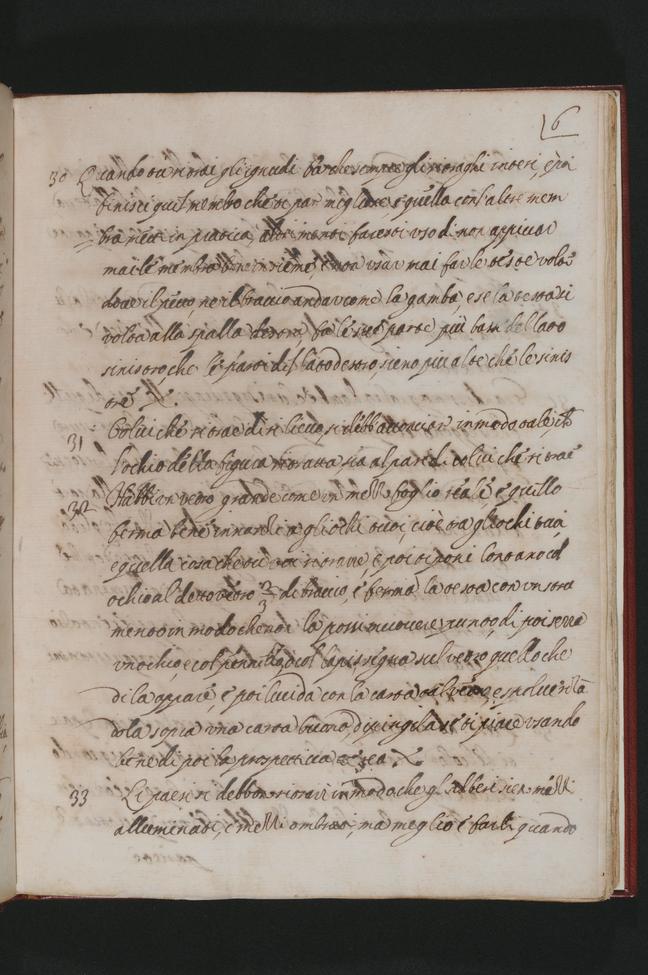 6
30 Quando tu ritrai gli ignudi fa che sempre gli ritraghi interi, e poi
finisci quel membro che ti par migliore, e quello con l'altre mem
bra metti in pratica, altrimenti faresti uso di non appiccar
mai le membra bene insieme, e non usar mai far le teste volte
dove il petto, ne il braccio andar come la gamba, e se la testa si
volta alla spalla destra, fa le sue parte più basse dell lato
sinistro, che le parti del lato destro, sieno più alte che le sinis
tre
31 Colui che ritrae di rilievo, si debbe acconciar in modo tale, che
l'ochio della figura ritratta sia al pari di colui che ritrae
32 Habbi un vetro grande come un mezzo foglio reale, e quello
ferma bene innanti a gli ochi tuoi, cioè tra gli ochi tuoi,
e quella cosa che tu vuoi ritrarre, e poi ti poni lontano col
ochio al detto vetro 2/3 di braccio, e ferma la testa con un stru
mento in modo che non la possi muovere punto, di poi serra
un ochio, e col pennello, o col lapis segna sul vetro quello che
di la appare, e poi lucida con la carta tal vetro, e spolveriza
dola sopra una carta buona, dipingela se ti piace usando
bene di poi la prospettiva aerea
33 Li paesi si debbon ritrarre in modo che gl'alberi sien mezzi
alluminati, e mezzi ombrati, ma meglio è farli quando